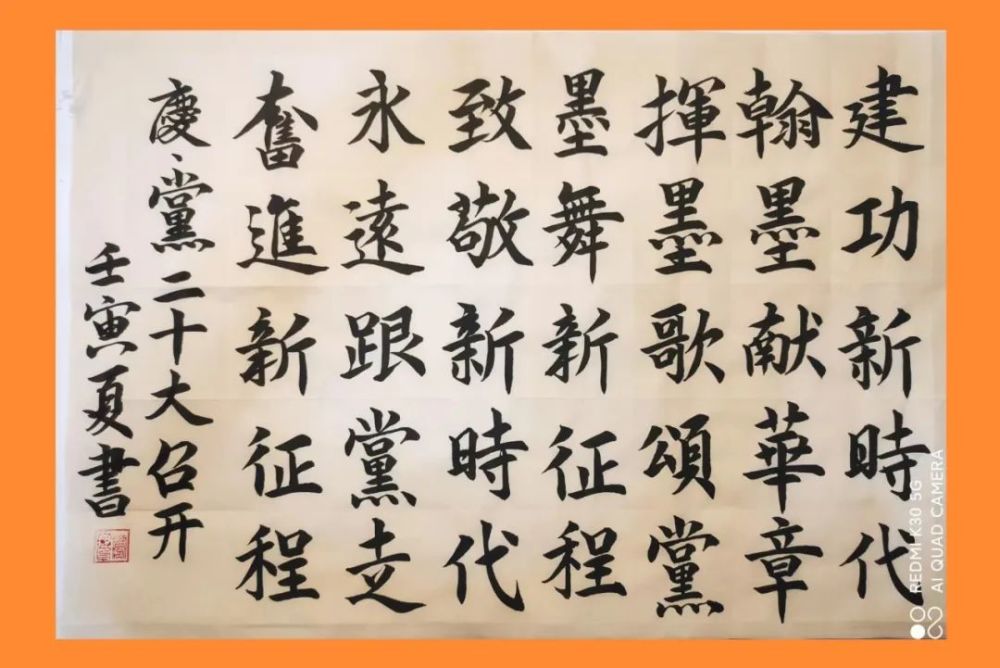 建功新時代
翰墨献華章
揮墨歌頌黨
墨舞新征程
致敬新時代
永遠跟黨走
奮進新征程
慶黨二十大召开
壬寅夏書
REDMI K30 5G
AI QUAD CAMERA